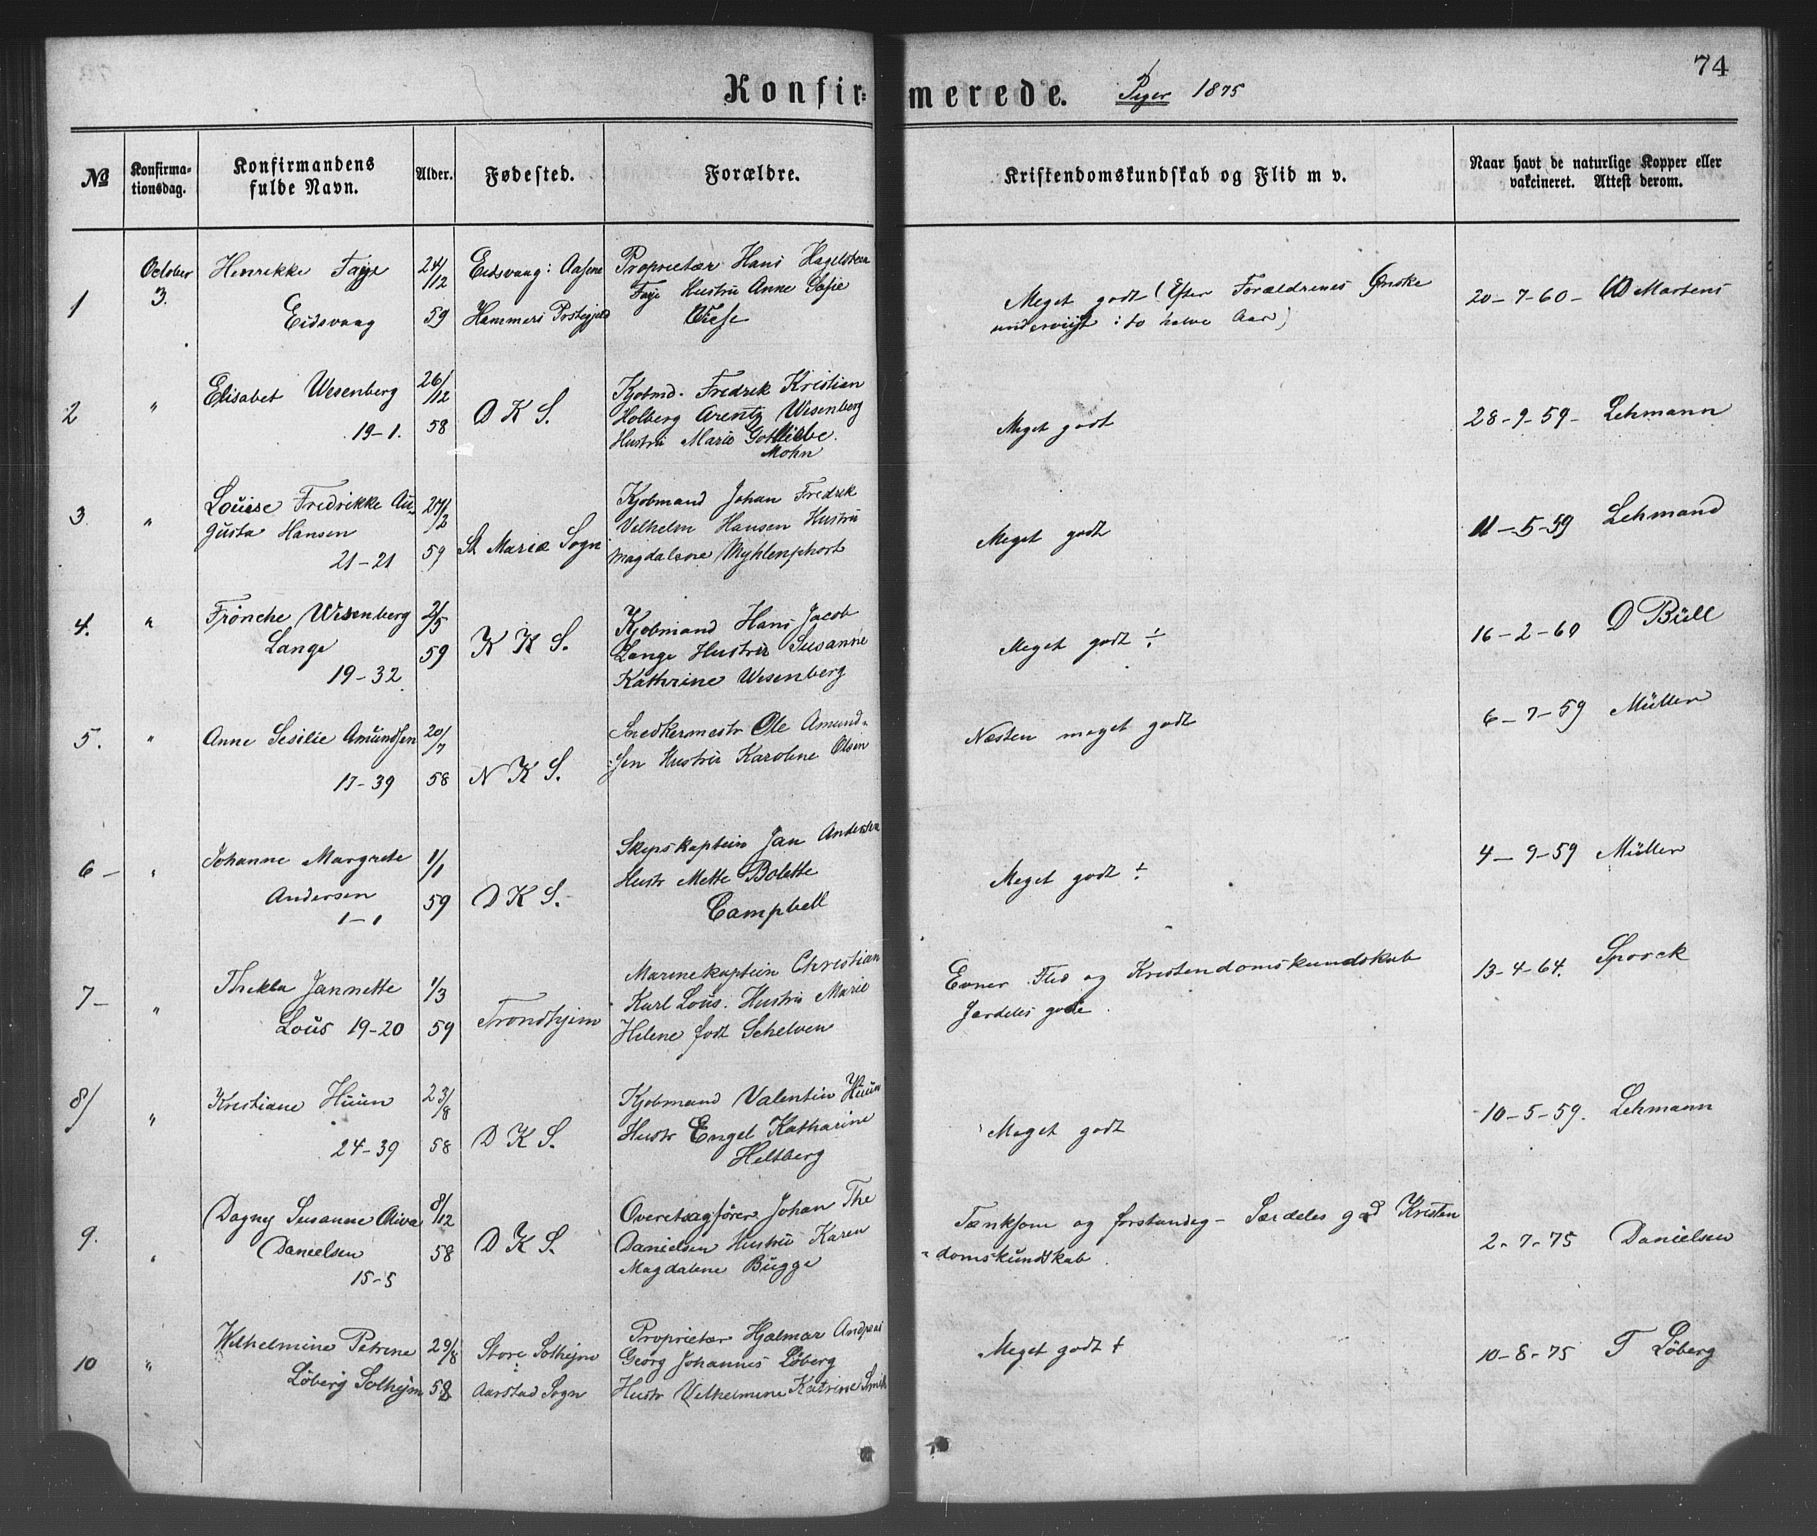 74
Konfirmerede. Piger 1875
No
Konfirma-
tionsdag.
Konfirmandens
fulde Navn.
Alder.
Fødested.
Forældre.
Kristendomskundskab og Flid m v.
Naar havt de naturlige Kopper eller
vakcineret. Attest derom.
1
October
3.
Henrikke Faye
Eidsvaag
24/12
59
Eidsvaag i Aasene
Hammers Prstegjeld
Proprietær Hans Hagelsteen
Faye Hustru Anne Sofie
Meget godt (Efter Forældrenes Ønske
underviist i to halve Aar)
20-7-60- Martens
2
"
Elisabet Wesenberg
19-1.
26/12
58
D K S.
Kjobmd. Fredrik Kristian
Holberg Arentz Wesenberg
Hustru Marie Gottliebe
Mohn
Meget godt
28-9-59- Lehmann
3
"
Louise Fredrikke Au-
gusta Hansen
21-21
27/2
59
St Mariæ Sogn
Kjobmand Johan Fredrik
Vilhelm Hansen Hustru
Magdalene Myhlenphort
Meget godt
11-5-59 Lehmand
4.
"
Frönche Wesenberg
Lange
19-32
2/5
59
K K S.
Kjobmand Hans Jacob
Lange Hustru Susanne
Kathrine Wesenberg
Meget godt ÷
16-2-60 D Büll
5.
"
Anne Sesilie Amundsen
17-39
20/7
58
N K S.
Snedkermestr Ole Amund-
sen Hustru Karoline Olsen
Næsten meget godt
6-7-59 Müller
6-
"
Johanne Margrete
Andersen
1-1
1/1
59
D K S.
Skipskaptein Jan Andersen
Hustr Mette Bolette
Campbell
Meget godt ÷
4-9-59 Müller
7-
"
Thekla Jannette
Loüs 19-20
1/3
59
Trondhjim
Marinekaptein Christian
Karl Loüs. Hustru Marie
Helene fodt Schelven
Evner Flid og Kristendomskundskab
Særdeles gode.
13-4-64. Sporck
8/
"
Kristiane Huun
24-39
23/8
58
D K S.
Kjobmand Valentin Huun
Hustr Engel Katharine
Heltberg
Meget godt
10-5-59. Lehmann
9.
"
Dagny Susanne Oliva
Danielsen
15-5
8/12
58
D K S.
Overetsagfører Johan The
Danielsen Hustru Karen
Magdalene Bugge
Tænksom og forstandig- Særdeles god Kristen
-domskundskab.
2-7-75 Danielsen
10
"
Wilhelmine Petrine
Løberg Solhejm
29/8
58
Store Solhejm
Aarstad Sogn
Proprietær Hjalmar Andreas
Georg Johannes Løberg
Hustr Vilhelmine Katrine Smith
Meget godt +
10-8-75 T Løberg